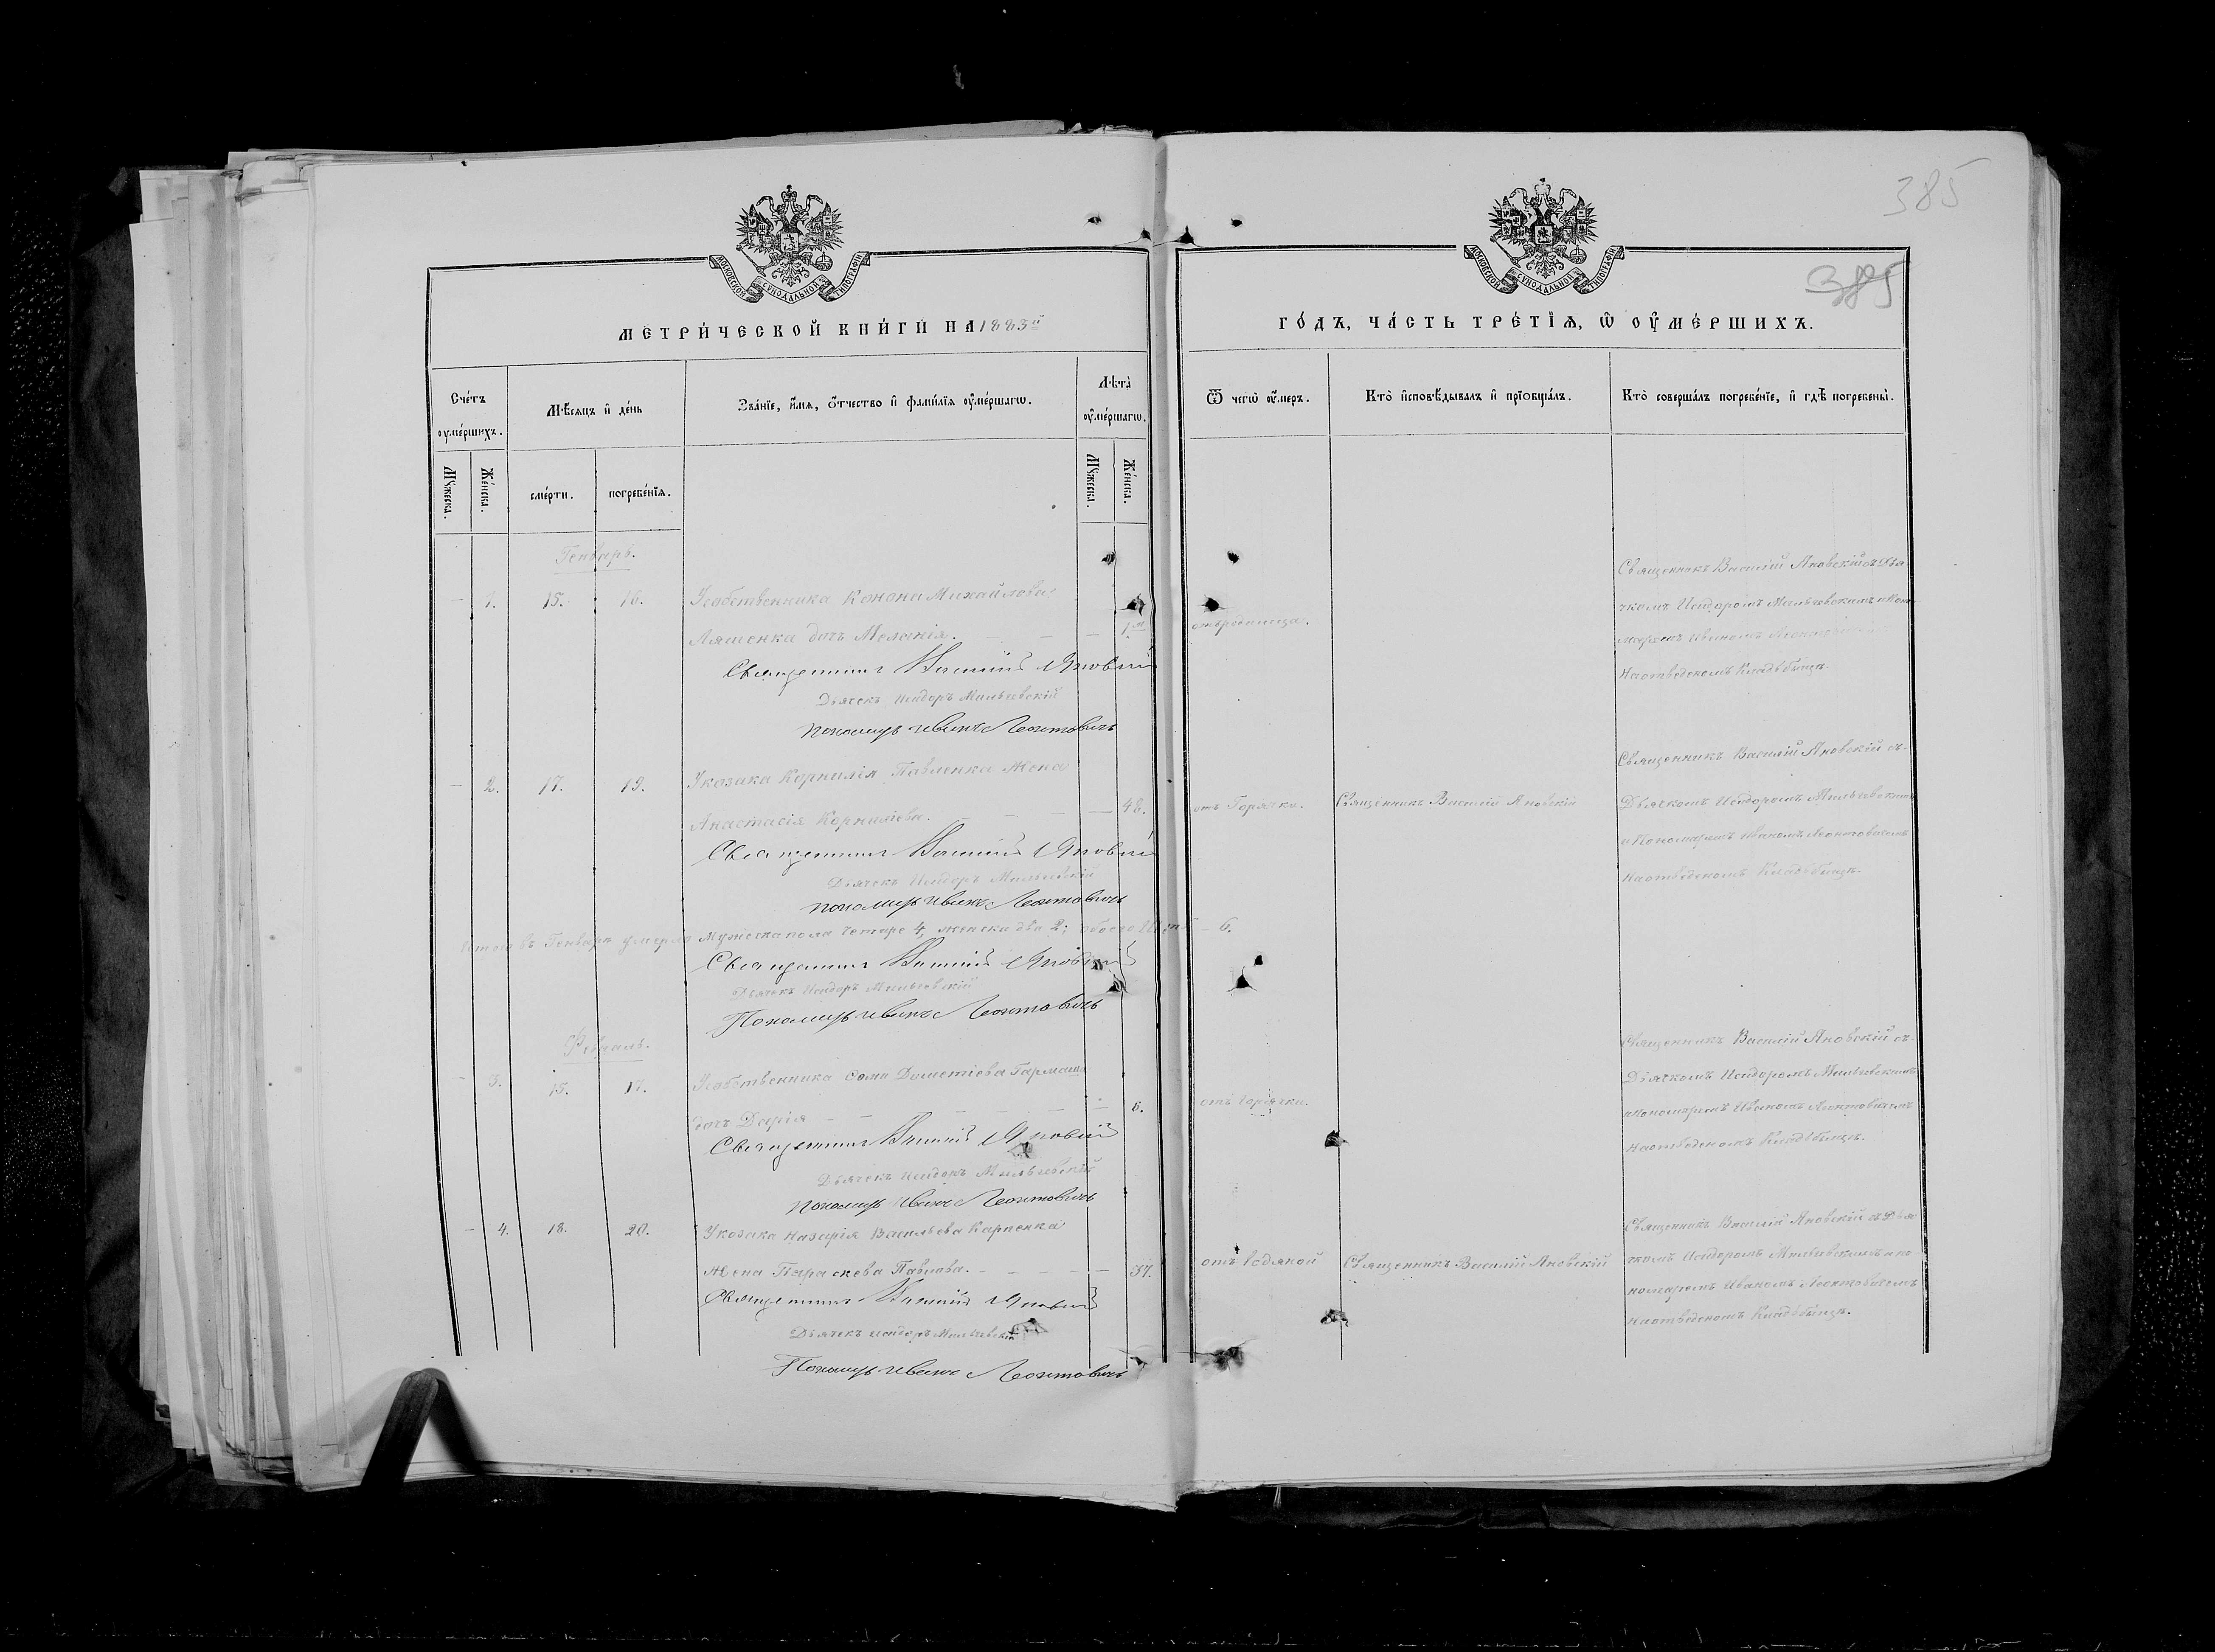 385
385
МОСКОВСКОЙ СѴНОДАЛЬНОЙ ТИПОГРАФІИ
МОСКОВСКОЙ СѴНОДАЛЬНОЙ ТИПОГРАФІИ
МЕТРИ́ЧЕСКОЙ КНИ́ГИ НА 1883й
ГО́ДЪ, ЧА́СТЬ ТРЕ́ТІѦ, Ѡ ОУ҆МЕ́РШИХЪ.
Сче́тъ оумершихъ.
Мѣ́сяцъ и де́нь
Зва́нїе, и҆́мя, о҆́тчество и҆ фами́лїя оу҆ме́ршагѡ.
Лѣ́та оу҆ме́ршагѡ.
Ѿ чегѡ̀ оу҆́меръ.
Кто̀ и҆сповѣ́дывалъ и҆ прїѻбща́лъ.
Кто̀ соверша́лъ погребе́нїе, и҆ гдѣ̀ погребены̀.
Мꙋжеска.
Же́нска.
сме́рти.
погребе́нїѧ.
Мꙋжеска.
Же́нска.
Генварь.
- 1. 15. 16. Усобственника Конона Михайлова
Ляшенка дочь Меланія. — — — 1.
Священникъ Василій Яновскій
Дьячекъ Исидоръ Мильчевскій
Пономарь Иванъ Леонтовичъ
Священникъ Василій Яновскій съ Дья
чкомъ Исидоромъ Мильчевскимъ и Поно
маремъ Иваномъ
На отведеномъ Кладбѣищѣ.
- 2. 17. 19. Укозака Корнилія Павленка жена
Анастасія Корниліева. — — — — 48.
отъ Горячки.
Священникъ Василій Яновскій
Священникъ Василій Яновскій съ
Дьячкомъ Исидоромъ Мильчевскимъ
и Пономаремъ Иваномъ Леонтовичемъ
На отведеномъ Кладбѣищѣ.
Священникъ Василій Яновскій
Дьячекъ Исидоръ Мильчевскій
Пономарь Иванъ Леонтовичъ
Итого въ Генварѣ умерло Мужеска пола четыре 4, женска два 2; обоего — 6.
Священникъ Василій Яновскій
Дьячекъ Исидоръ Мильчевскій
Пономарь Иванъ Леонтовичъ
Февраль.
- 3. 15. 17. Усобственника Сомы Дометіева Гармаша
дочь Дарія — — — — — — 6.
отъ горячки.
Священникъ Василій Яновскій съ
Дьячкомъ Исидоромъ Мильчевскимъ
и Пономаремъ Иваномъ Леонтовичемъ
На отведеномъ Кладбѣищѣ.
Священникъ Василій Яновскій
Дьячекъ Исидоръ Мильчевскій
Пономарь Иванъ Леонтовичъ
- 4. 18. 20. Укозака Назарія Васильева Карпенка
жена Параскева Павлова. — — — — 37.
отъ водяной
Священникъ Василій Яновскій
Священникъ Василій Яновскій съ Дья
чкомъ Исидоромъ Мильчевскимъ и по
номаремъ Иваномъ Леонтовичемъ
На отведеномъ Кладбѣищѣ.
Священникъ Василій Яновскій
Дьячекъ Исидоръ Мильчевскій
Пономарь Иванъ Леонтовичъ